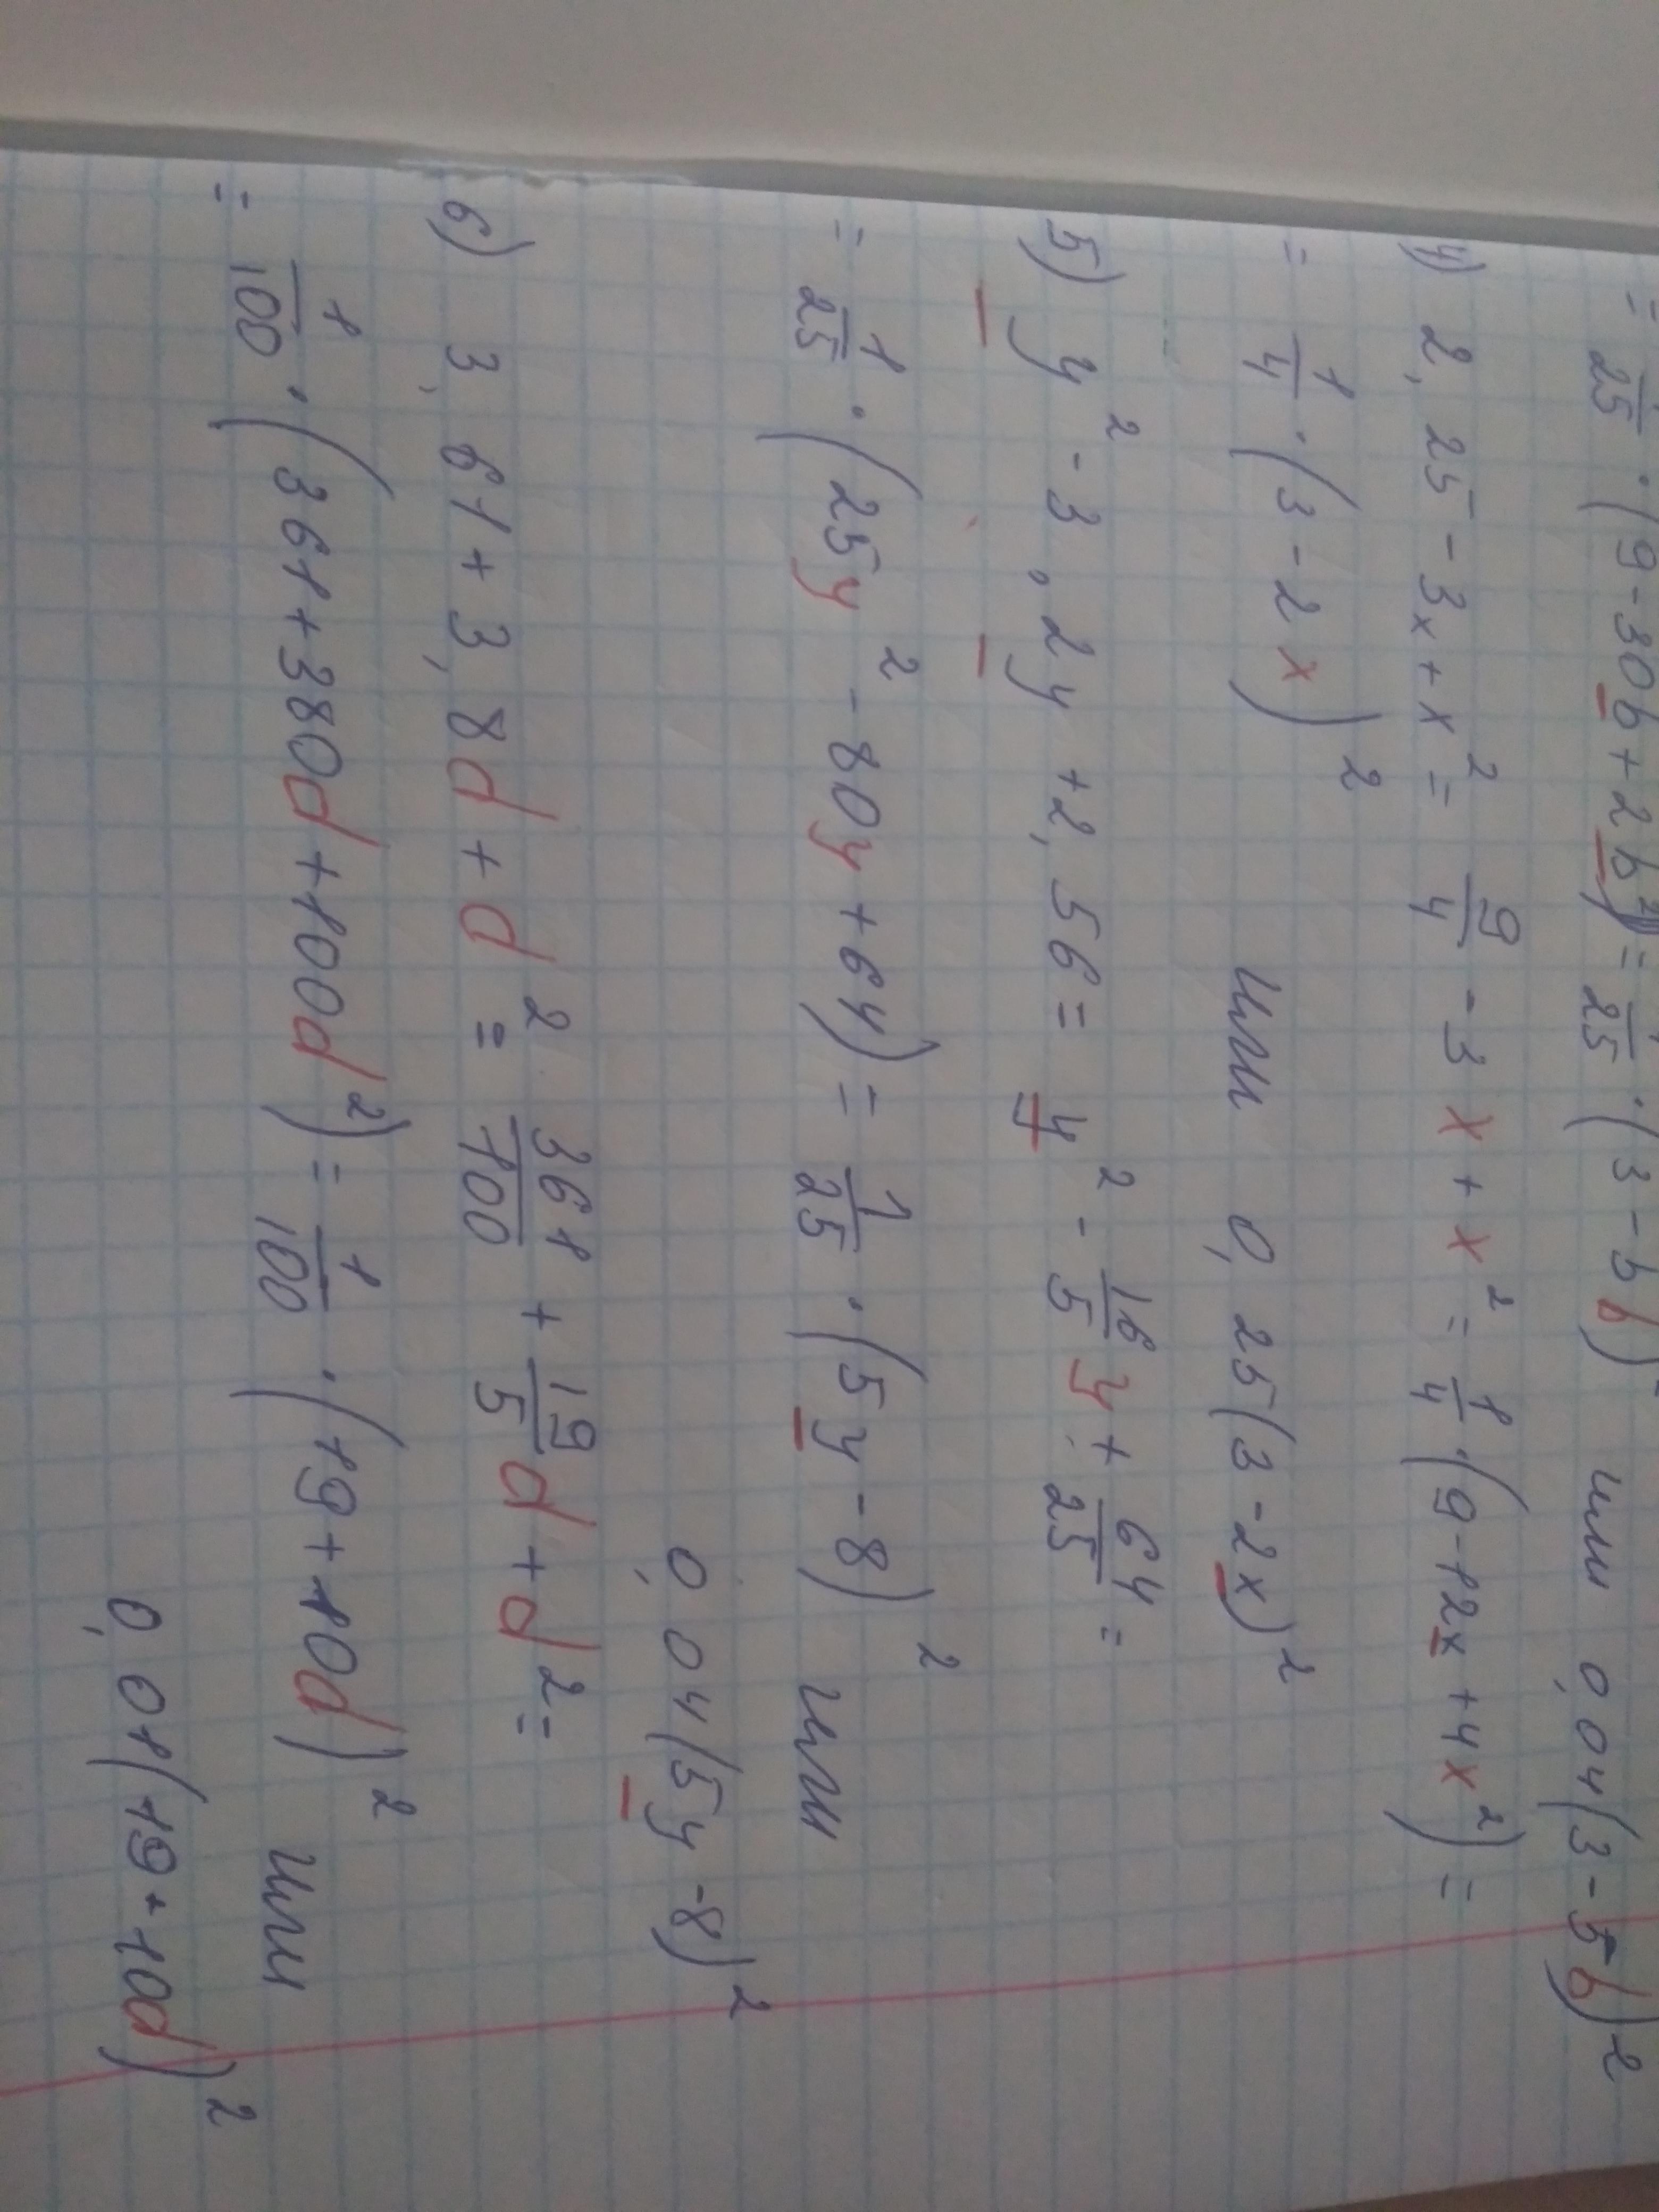 = 1/25 · (9 - 30b + 25b²) = 1/25 · (3 - 5b)² или 0,04(3 - 5b)²
4) 2,25 - 3x + x² = 9/4 - 3x + x² = 1/4 · (9 - 12x + 4x²) =
= 1/4 · (3 - 2x)² или 0,25(3 - 2x)²
5) y² - 3,2y + 2,56 = y² - 16/5 y + 64/25 =
= 1/25 · (25y² - 80y + 64) = 1/25 · (5y - 8)² или
0,04(5y - 8)²
6) 3,61 + 3,8d + d² = 361/100 + 19/5 d + d² =
= 1/100 · (361 + 380d + 100d²) = 1/100 · (19 + 10d)² или
0,01(19 + 10d)²